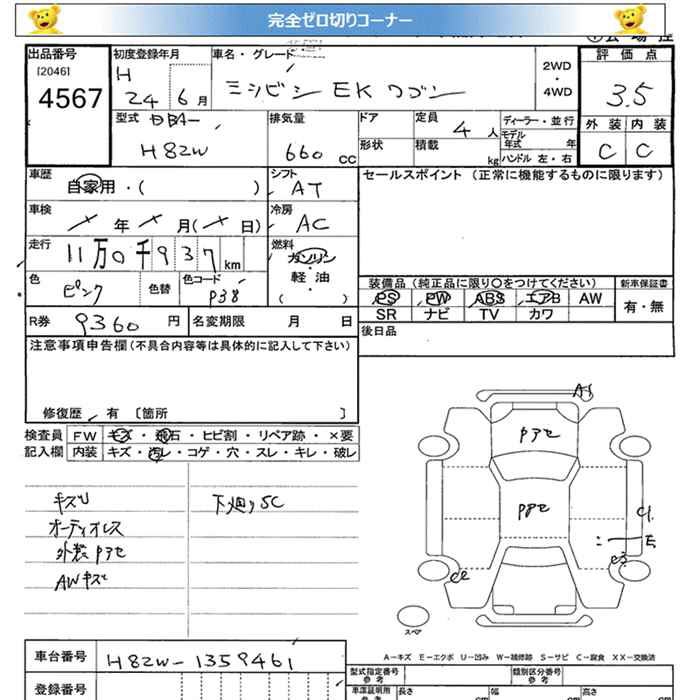 完全ゼロ切りコーナー
出品番号 初度登録年月 車名・グレード 評価点
[2046]
4567 H 24 6月 ミシビシ EK ワゴン 2WD・4WD 3.5
型式 DBA- 排気量 ドア 定員 4人 ディーラー・並行 外装 内装
H82W 660 CC 形状 積載 kg モデル年式 年 ハンドル 左・右 C C
車歴 自家用・( ) シフト AT セールスポイント (正常に機能するものに限ります)
車検 年 月( 日) 冷房 AC
走行 11万0千937km 燃料 ガソリン・軽油 ( )
色 ピンク 色替 色コード P38 装備品 (純正品に限り○をつけてください) 新車保証書
PS PW ABS エアB AW 有・無
SR ナビ TV カワ
R券 9360円 名変期限 月 日 後日品
注意事項申告欄(不具合内容等は具体的に記入して下さい)
修復歴 有 〔箇所 〕
検査員 FW キズ・飛石・ヒビ割・リペア跡・×要
記入欄 内装 キズ・汚レ・コゲ・穴・スレ・キレ・破レ
キズU 下廻りSC
オーディオレス
外装Pアセ
AWキズ
A1
Pアセ
Pアセ
E
スペア
A-キズ E-エクボ U-凹み W-補修跡 S-サビ C-腐食 XX-交換済
車台番号 H82W-1359461 型式指定番号 参考 類別区分番号 参考
登録番号 車庫証明用 参考 長さ cm 幅 cm 高さ cm